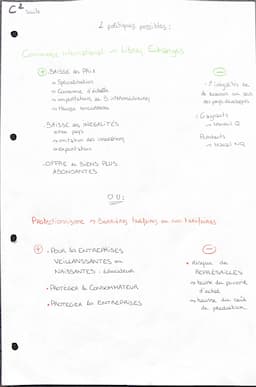 C² Suite
2 politiques possibles :
Commerce international → Libres Echanges
+
- BAISSE des PRIX
→ Spécialisation
→ Economie d'échelle
→ importations de B. intermédiaires
→
- BAISSE des INÉGALITÉS
entre pays
→ imitation des innovations
→ exportation
- OFFRE de BIENS PLUS
ABONDANTES
-
des pays développés
Gagnants
→ travail Q
Perdants
→ travail NQ
OU
Protectionnisme → Barrières tarifaires ou non tarifaires
+
• POUR les ENTREPRISES
VIEILLISSANTES ou
NAISSANTES : éducateur
• PROTÉGER le CONSOMMATEUR
• PROTÉGER les ENTREPRISES
-
• Risque de
REPRÉSAILLES
→ baisse du pouvoir
d'achat
→ hausse du coût
de production